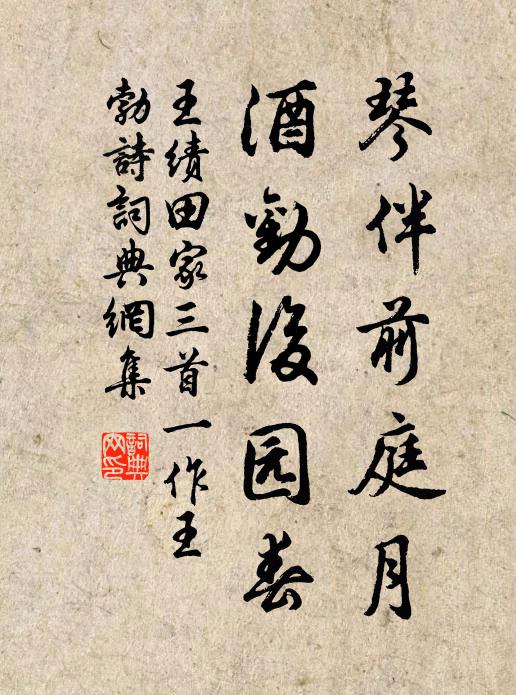 琴伴前庭月
酒勸後园春
王績田家三首一作王
勃詩詞典網集
詞典网印